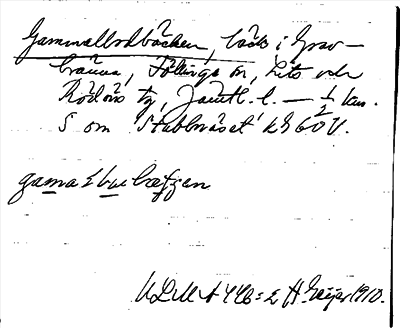 Gammalbodbäcken, bäck i Grav-
bränna, Föllinge sn, Hits och
Rödöns tg, Jämtl. l. — ½ km.
S om Stubbnäset kh 60 V.
gamaɫbuebætʃen
ULMA 446:2 H. Geijer 1910.